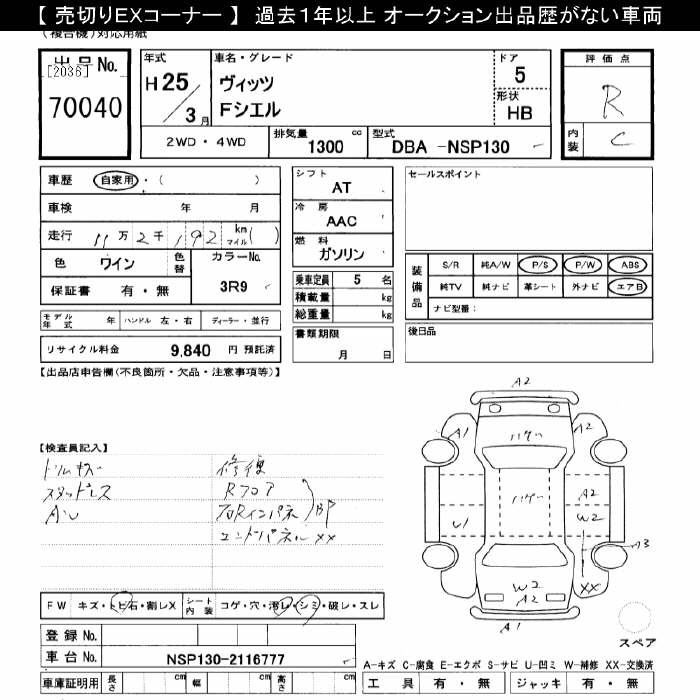 【 売切りEXコーナー 】 過去1年以上 オークション出品歴がない車両
(複合機)対応用紙
出品No.
[2036]
70040
年式
H25/3月
車名・グレード
ヴィッツ
Fシエル
ドア
5
形状
HB
評価点
R
内装
C
2WD・4WD
排気量
1300 cc
型式
DBA -NSP130
車歴 自家用・( )
車検 年 月
走行 11万2千192 km マイル( )
色 ワイン
色替
カラーNo.
3R9
保証書 有・無
モデル年式 年 ハンドル 左・右 ディーラー・並行
リサイクル料金 9,840 円 預託済
シフト
AT
冷房
AAC
燃料
ガソリン
乗車定員 5 名
積載量 kg
総重量 kg
書類期限
月 日
セールスポイント
装備品
S/R 純A/W P/S P/W ABS
純TV 純ナビ 革シート 外ナビ エアB
ナビ型量:
後日品
【出品店申告欄(不良箇所・欠品・注意事項等)】
【検査員記入】
トリムキズ
スタッドレス
A,U
修復
Rフロア
右Rインパネ
BP
エンドパネルXX
A2
A1
A2
ハゲー
ハゲー
A2
U1
W2
A3
XX
W2
A2
A1
スペア
FW キズ・トビ石・割レX
シート内装 コゲ・穴・汚レ・シミ・破レ・スレ
登録No.
車台No. NSP130-2116777
車庫証明用 長さ cm 幅 cm 高さ cm
A-キズ C-腐食 E-エクボ S-サビ U-凹ミ W-補修 XX-交換済
工具 有・無 ジャッキ 有・無